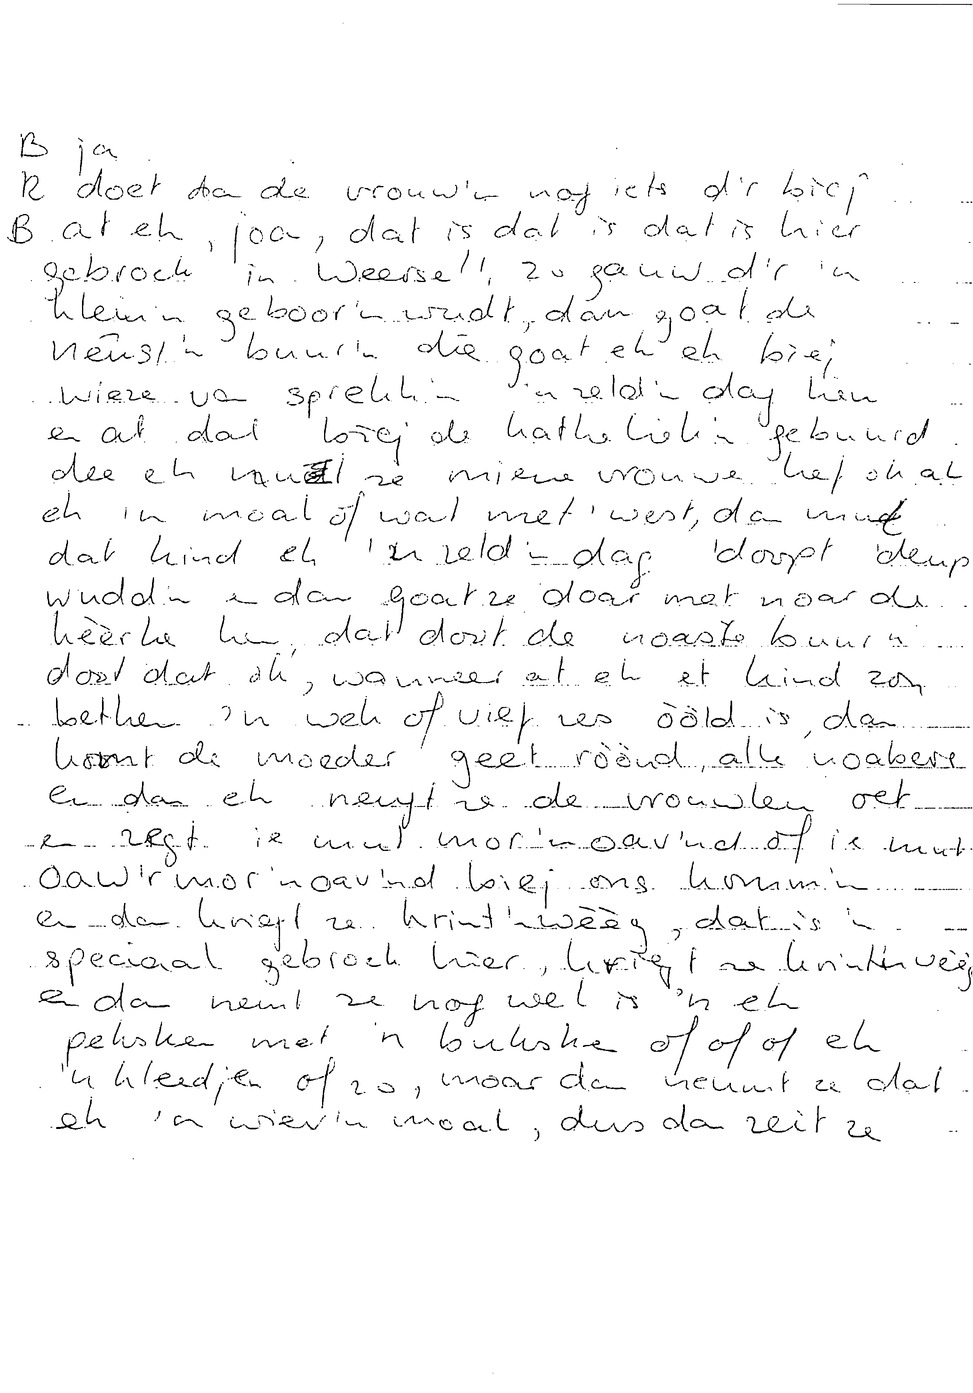 B ja
R doet da de vrouw'n nog iets d'r biej
B at eh, joa, dat is dat is dat is hier
gebroek in Weersel!, zo gauw d'r 'n
klein'n geboor'n wudt, dan goat de
buur'n die goat eh eh biej
wieze van sprekk'n 'n zeld'n dag hen
en at dat biej de katheliek'n gebuurd
dee eh ze miene vrouwe hef ok at
eh 'n moal of wat met 'west, dan mut
dat kind eh 'n zeld'n dag 'doopt 'deup
wudd'n en dan goat ze doar met noar de
kèèrke hen, dat doot de noaste buur'n
doot dat ok, wanneer at eh et kind zon
betken 'n wek of vief zes ööld is, dan
komt de moeder geet röönd, alle noabers
en dan eh neugt ze de vrouwleu oet
en zegt ie mut mor'noav'nd of ie mut
oaw'rmor'noav'nd biej ons komm'n
en dan kriegt ze krint'nwèèg, dat is 'n
speciaal gebroek hier, kriegt ze krint'nwèèg
en dan nemt ze nog wel is 'n eh
peksken met 'n bukske of of of eh
'n kleedjen of zo, moar dan neumt ze dat
eh 'n wiev'n moal, dus dan zeit ze